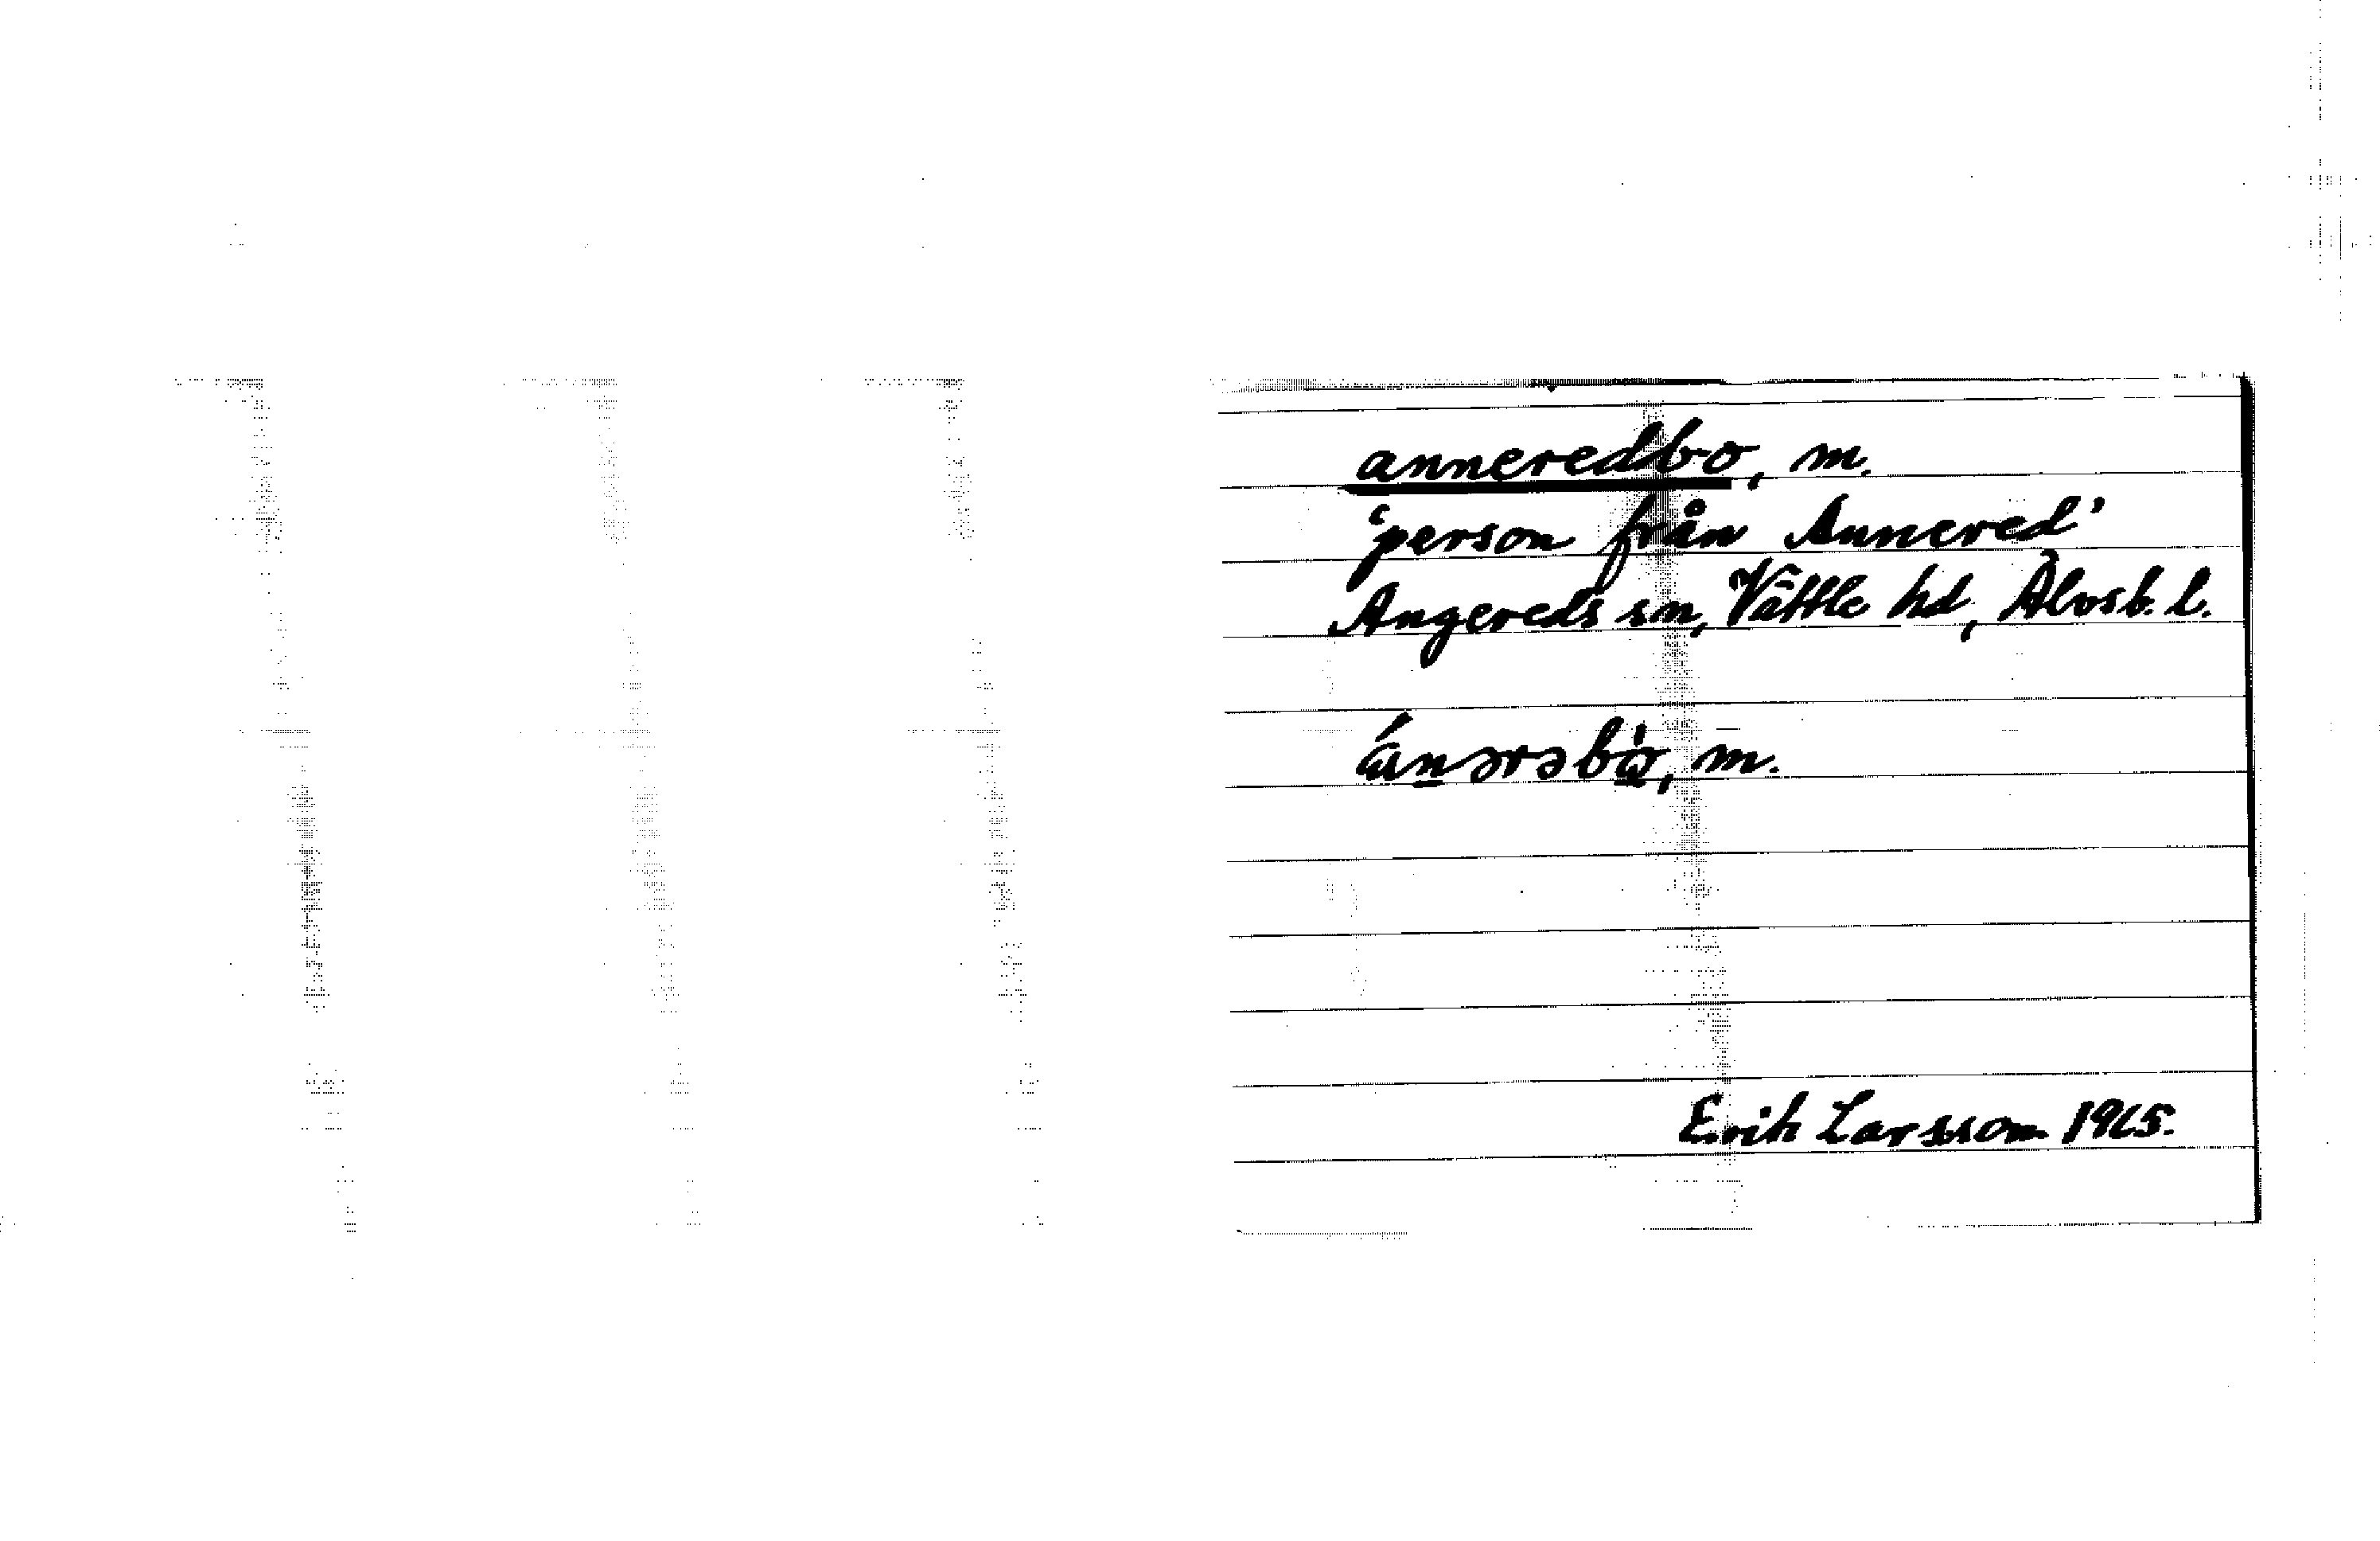 anneredbo, m.
‘person från Annered’
Angereds sn, Vättle hd, Älvsb. l.
ánərəbò, m.
Erik Larsson 1965.